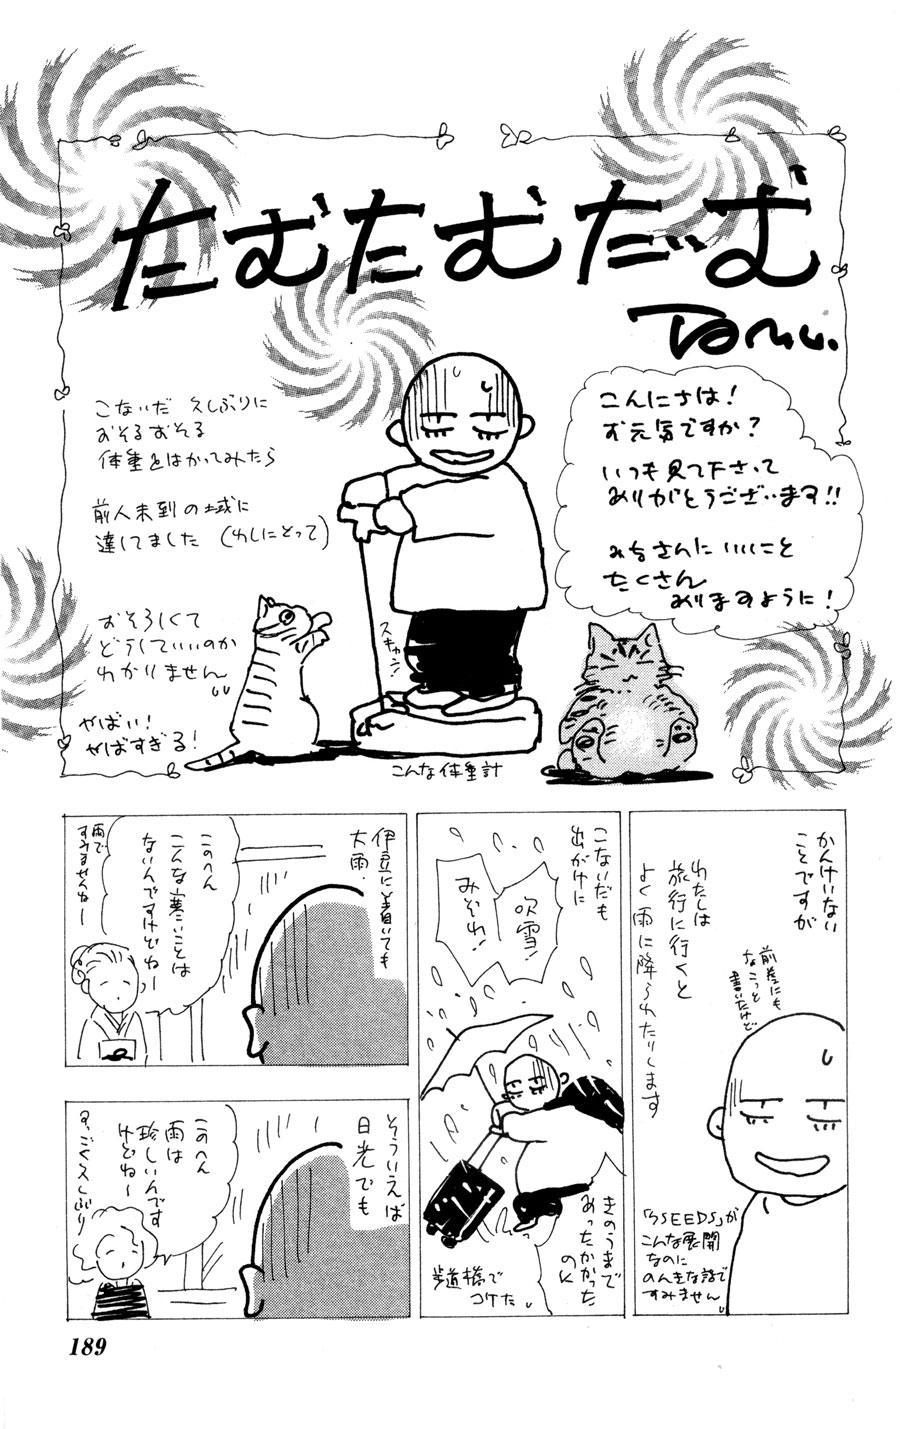 たむたむだーむ
Tamu.
こないだ 久しぶりに
おそるおそる
体重をはかってみたら
前人未到の域に
達してました (わしにとって)
おそろしくて
どうしていいのか
わかりません
やばい!
やばすぎる!
スキャン!
こんな体重計
こんにちは!
お元気ですか?
いつも見て下さって
ありがとうございます!!
みなさんにいいこと
たくさん
ありますように!
かんけいない
ことですが
わたしは
旅行に行くと
よく雨に降られたりします
前巻にも
なこっと
書いたけど
「7SEEDS」が
こんな展開
なのに
のんきな話で
すみません
こないだも
出がけに
吹雪!
みぞれ!
きのうまで
あったかかった
のに
歩道橋で
コケた
伊豆に着いても
大雨.
このへん
こんな寒いことは
ないんですけどねー
雨で
すみませんねー
そういえば
日光でも
このへん
雨は
珍しいんです
けどねー
すっごく久しぶり
189